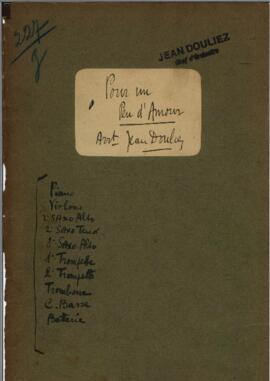 227
JEAN DOULIEZ
Chef d'Orchestre
Pour un
Peu d'Amour
Arrt Jean Douliez
Piano
Violons
1º SAXO Alto
2º SAXO Tenor
3º SAXO Alto
1º Trompette
2º Trompette
Trombone
C. Basse
Batterie